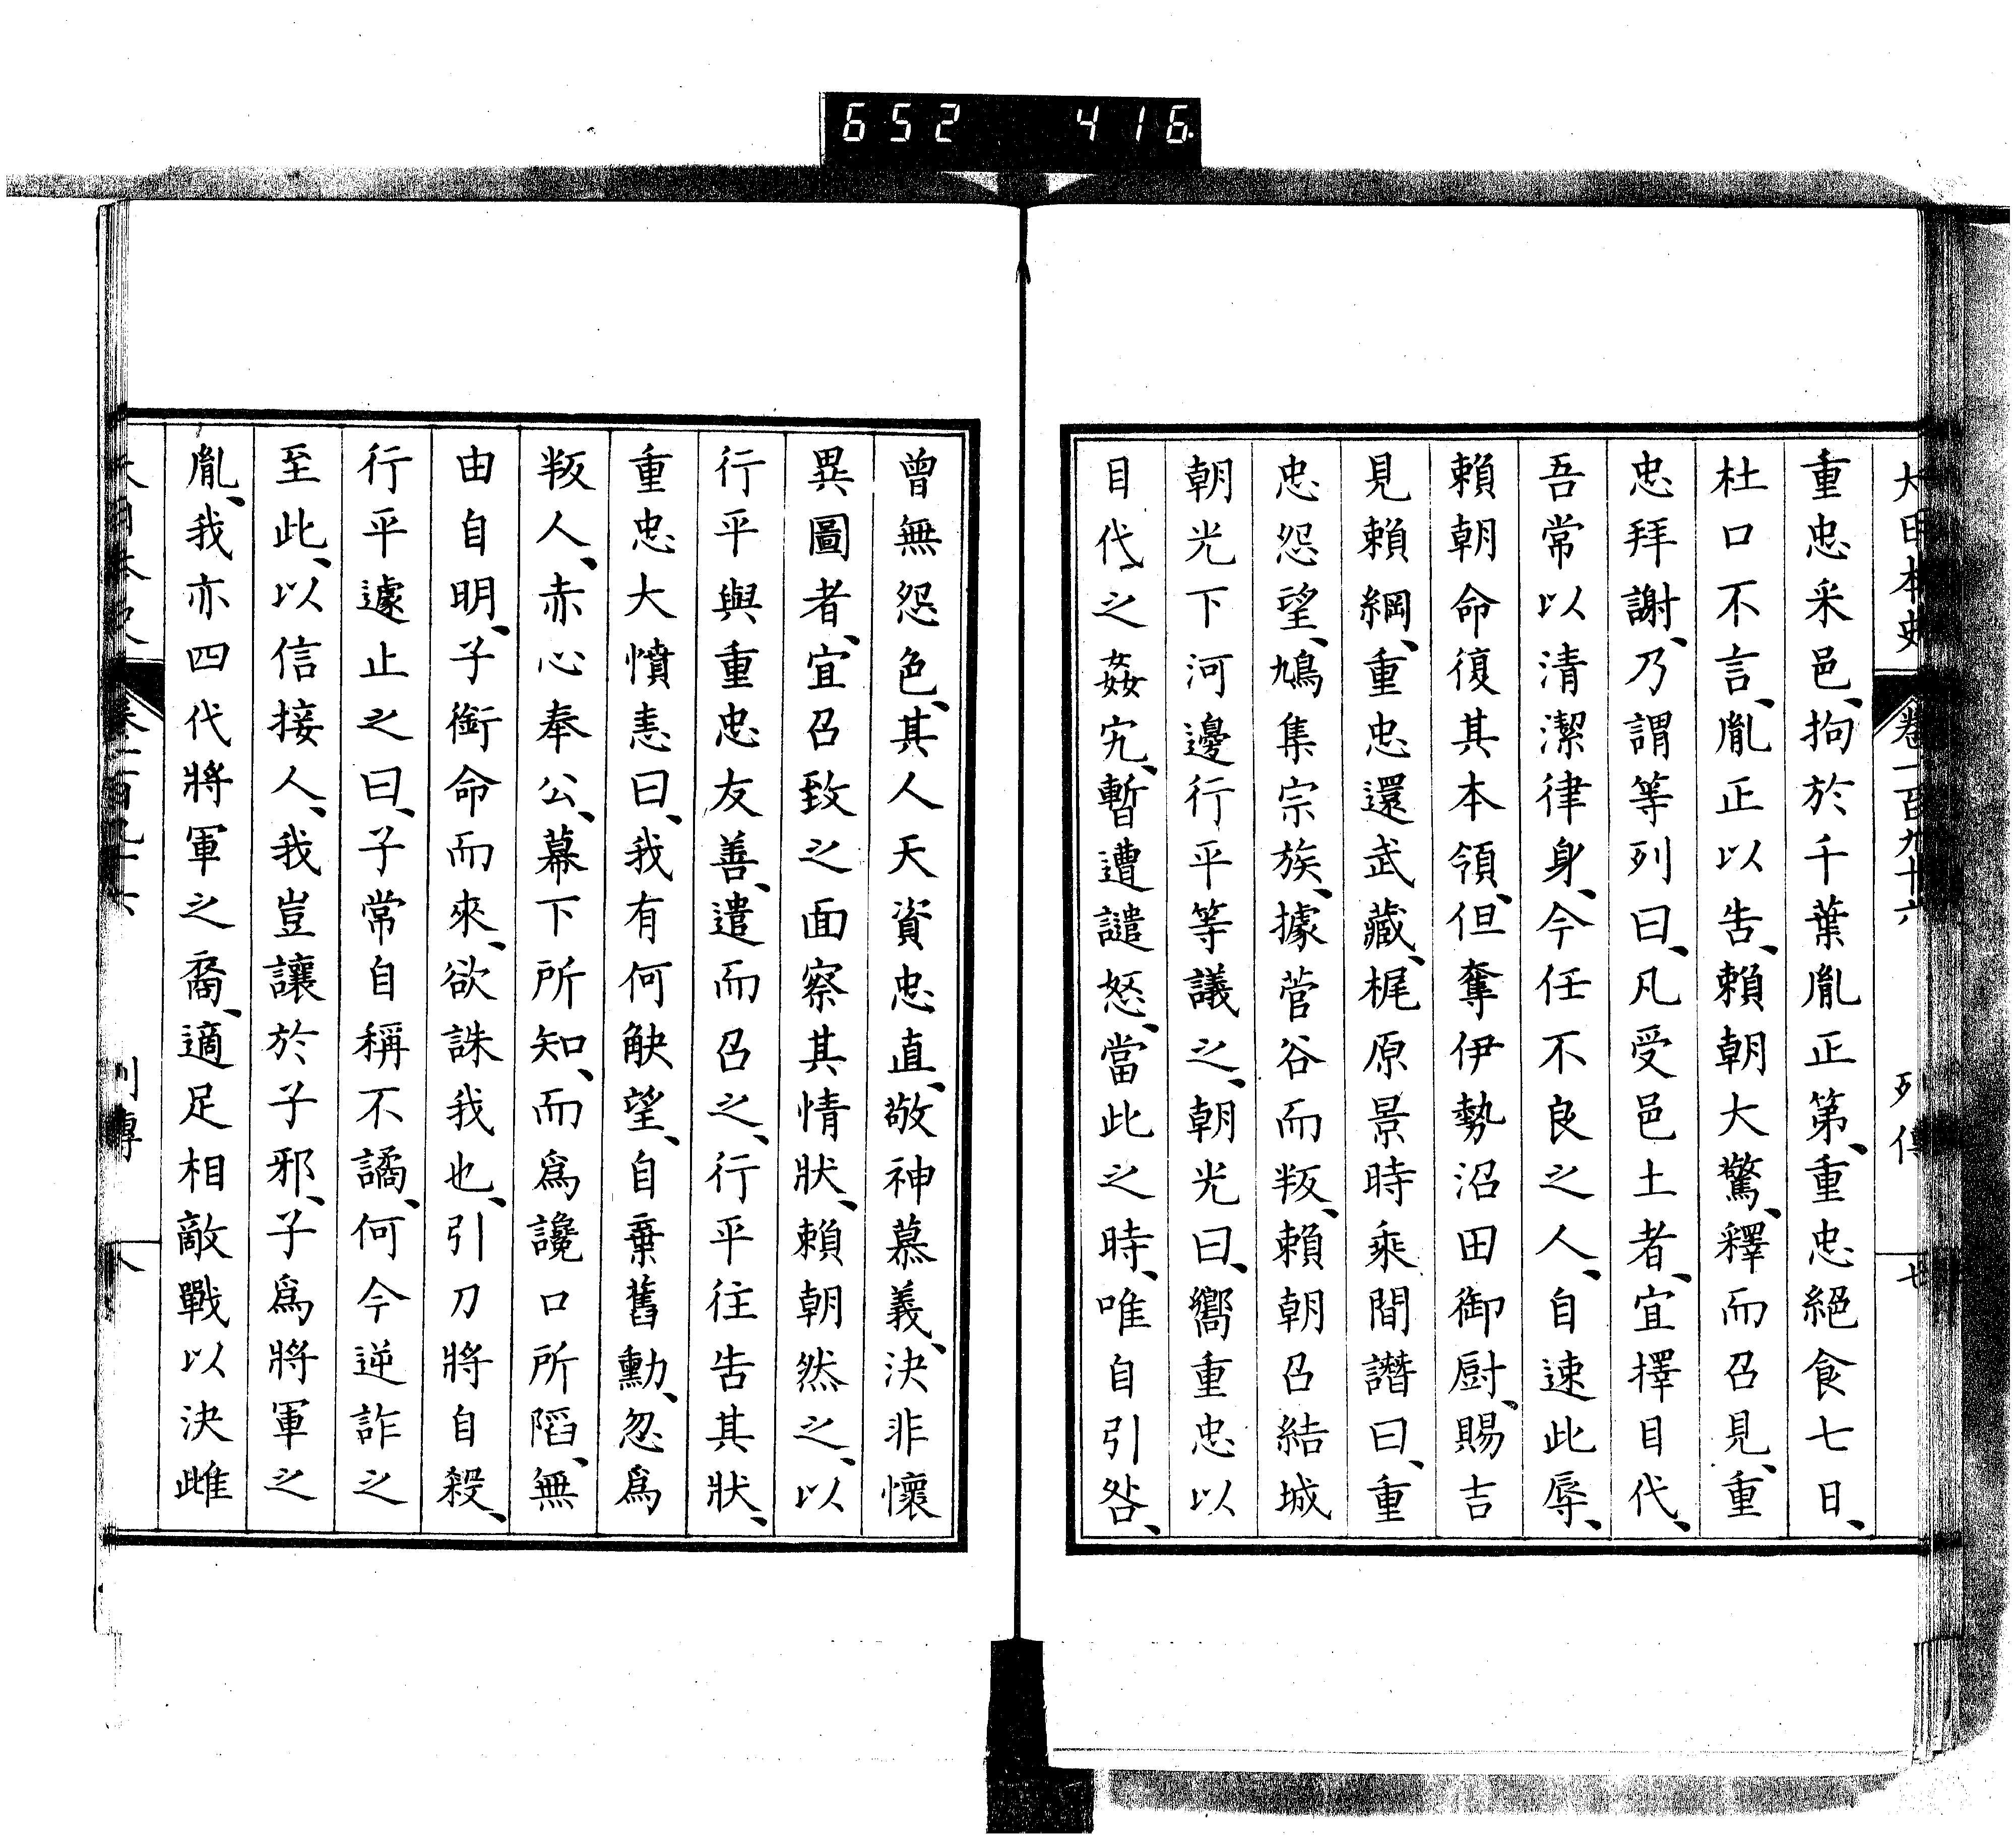 652 416
大日本史 卷一百九十六 列傳 七
重忠采邑、拘於千葉胤正第、重忠絕食七日、
杜口不言、胤正以告、賴朝大驚、釋而召見、重
忠拜謝、乃謂等列曰、凡受邑土者、宜擇目代、
吾常以清潔律身、今任不良之人、自速此辱、
賴朝命復其本領、但奪伊勢沼田御厨、賜吉
見賴綱、重忠還武藏、梶原景時乘間譖曰、重
忠怨望、鳩集宗族、據菅谷而叛、賴朝召結城
朝光下河邊行平等議之、朝光曰、嚮重忠以
目代之姦宄、暫遭譴怒、當此之時、唯自引咎、
曾無怨色、其人天資忠直、敬神慕義、決非懷
異圖者、宜召致之面察其情狀、賴朝然之、以
行平與重忠友善、遣而召之、行平往告其狀、
重忠大憤恚曰、我有何觖望、自棄舊勳、忽爲
叛人、赤心奉公、幕下所知、而爲讒口所陷、無
由自明、子銜命而來、欲誅我也、引刀將自殺、
行平遽止之曰、子常自稱不譎、何今逆詐之
至此、以信接人、我豈讓於子邪、子爲將軍之
胤、我亦四代將軍之裔、適足相敵戰以決雌
大日本史 卷一百九十六 列傳 八